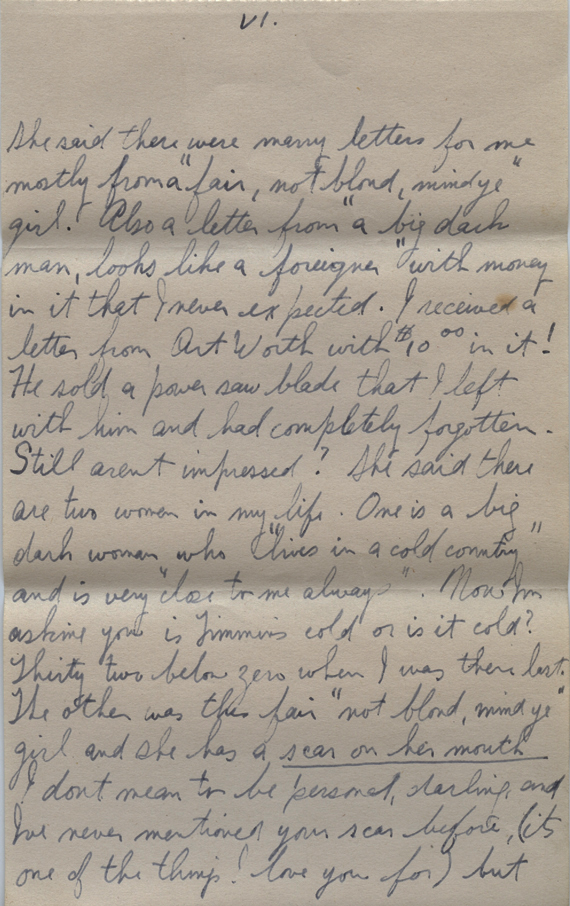 VI.
She said there were many letters for me
mostly from a "fair, not blond, mind ye"
girl. Also a letter from "a big dark
man, looks like a foreigner" with money
in it that I never expected. I received a
letter from Art Worth with $10.00 in it!
He sold a power saw blade that I left
with him and had completely forgotten.
Still arent impressed? She said there
are two women in my life. One is a big
dark woman who "lives in a cold country"
and is very "close to me always". Now I'm
asking you is Timmins cold or is it cold?
Thirty two below zero when I was there last.
The other was this fair "not blond, mind ye"
girl and she has a scar on her mouth
I dont mean to be personal, darling, and
I've never mentioned your scar before, (its
one of the things I love you for) but